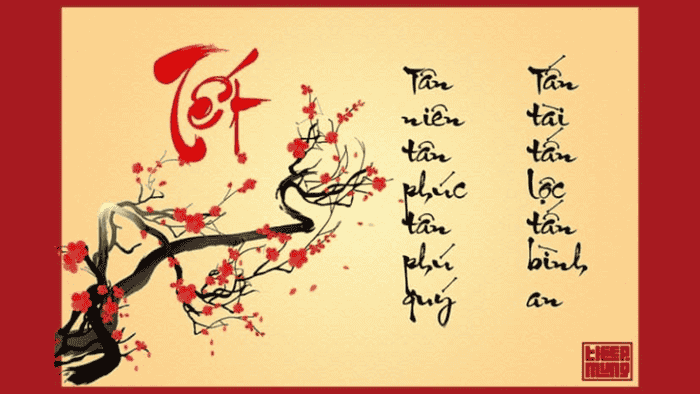 Tết
Tân niên tân phúc tân phú quý
Tấn tài tấn lộc tấn bình an